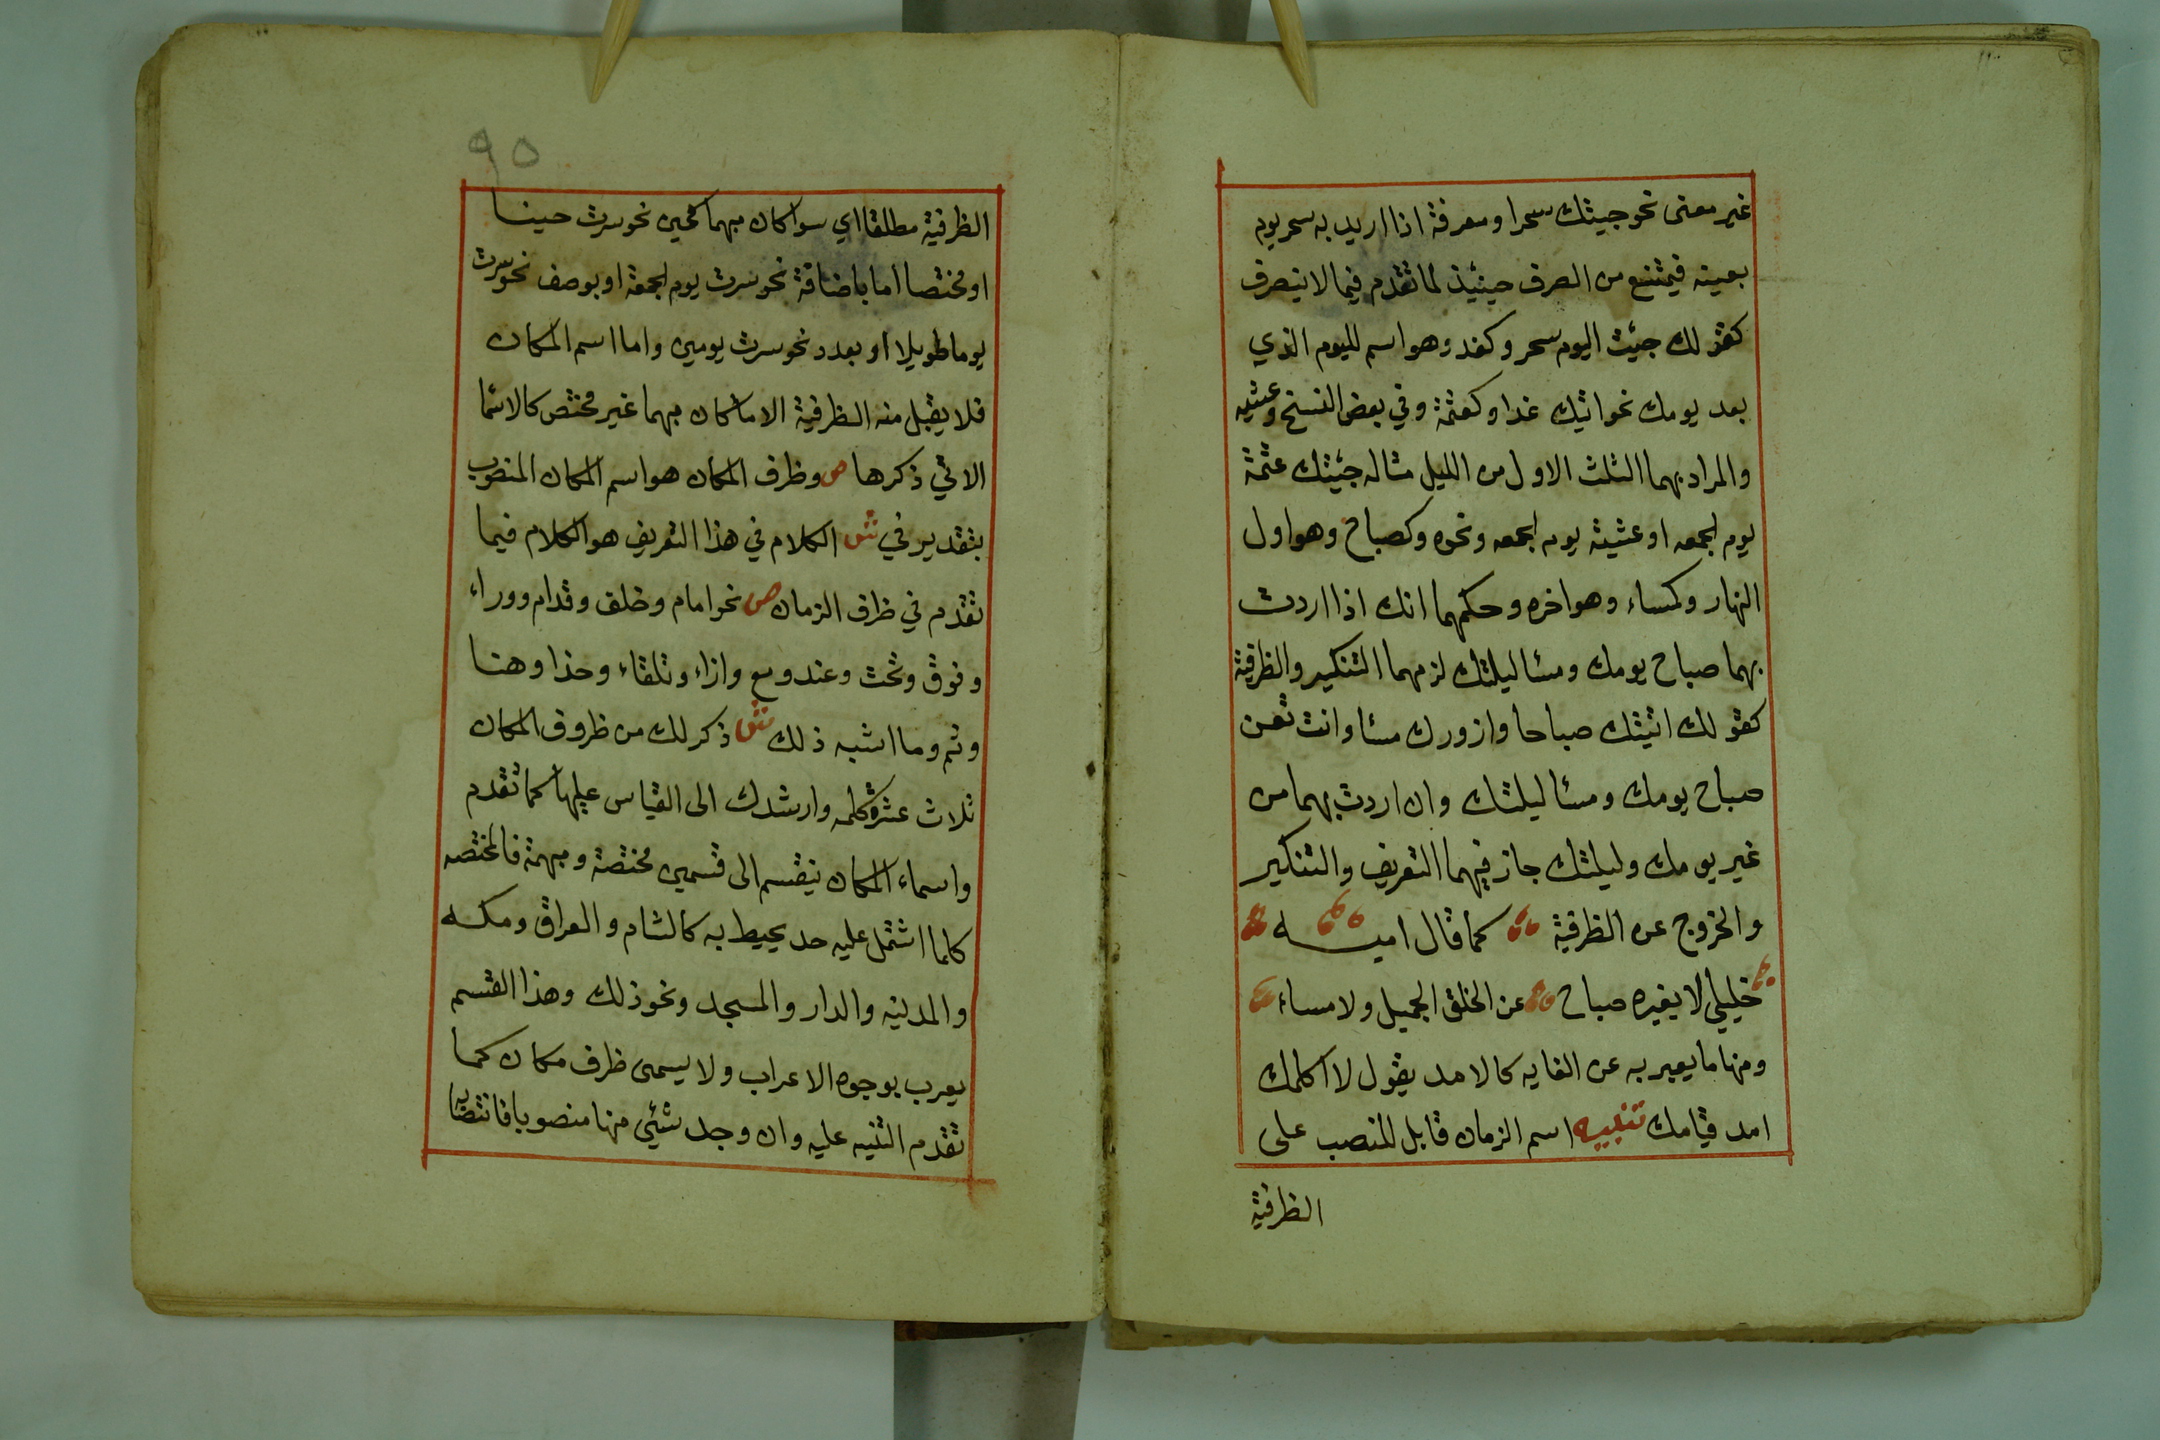 غير معنى نحو جيتك سحرا ومعرفة اذا اريد به سحر يوم
بعينه فيمتنع من الصرف حينئذ لما تقدم فيما لا ينصرف
كقولك جئت اليوم سحر وكغد وهو اسم لليوم الذي
بعد يومك نحو اتيك غدا وكعتمة وفي بعض النسخ وعشيه
والمراد بهما الثلث الاول من الليل مثاله جئتك عتمة
يوم الجمعه او عشية يوم الجمعه ونحوه وكصباح وهو اول
النهار وكمساء وهو اخره وحكمهما انك اذا اردت
بهما صباح يومك ومسا ليلتك لزمهما التنكير والظرفية
كقولك اتيتك صباحا وازورك مسا وانت تعن
صباح يومك ومسا ليلتك وان اردت بهما من
غير يومك وليلتك جاز فيهما التعريف والتنكير
والخروج عن الظرفية كما قال اميه
خليلي لا يغيره صباح عن الخلق الجميل ولا مساء
ومنها ما يعبر به عن الغايه كالامد يقول لا اكلمك
امد قيامك تنبيه اسم الزمان قابل للنصب على
الظرفية
٩٥
الظرفية مطلقا اي سوا كان مبهما كحين نحو سرت حينا
او مختصا اما باضافة نحو سرت يوم الجمعة او بوصف نحو سرت
يوما طويلا او بعدد نحو سرت يومين واما اسم المكان
فلا يقبل منه الظرفية الا ما كان مبهما غير مختص كالاسما
الاتي ذكرها ص وظرف المكان هو اسم المكان المنصوب
بتقدير في ش الكلام في هذا التعريف هو الكلام فيما
تقدم في ظرف الزمان ص نحو امام وخلف وقدام ووراء
وفوق وتحت وعند ومع وازاء وتلقاء وحذا وهنا
وثم وما اشبه ذلك ش ذكر لك من ظروف المكان
ثلاث عشرة كلمه وارشدك الى القياس عليها كما تقدم
واسماء المكان ينقسم الى قسمين مختصة ومبهمة فالمختصه
كلما اشتمل عليه حد يحيط به كالشام والعراق ومكه
والمدينه والدار والمسجد ونحو ذلك وهذا القسم
يعرب بوجوه الاعراب ولا يسمى ظرف مكان كما
تقدم التنبيه عليه وان وجد شئي منها منصوبا فانتصابه